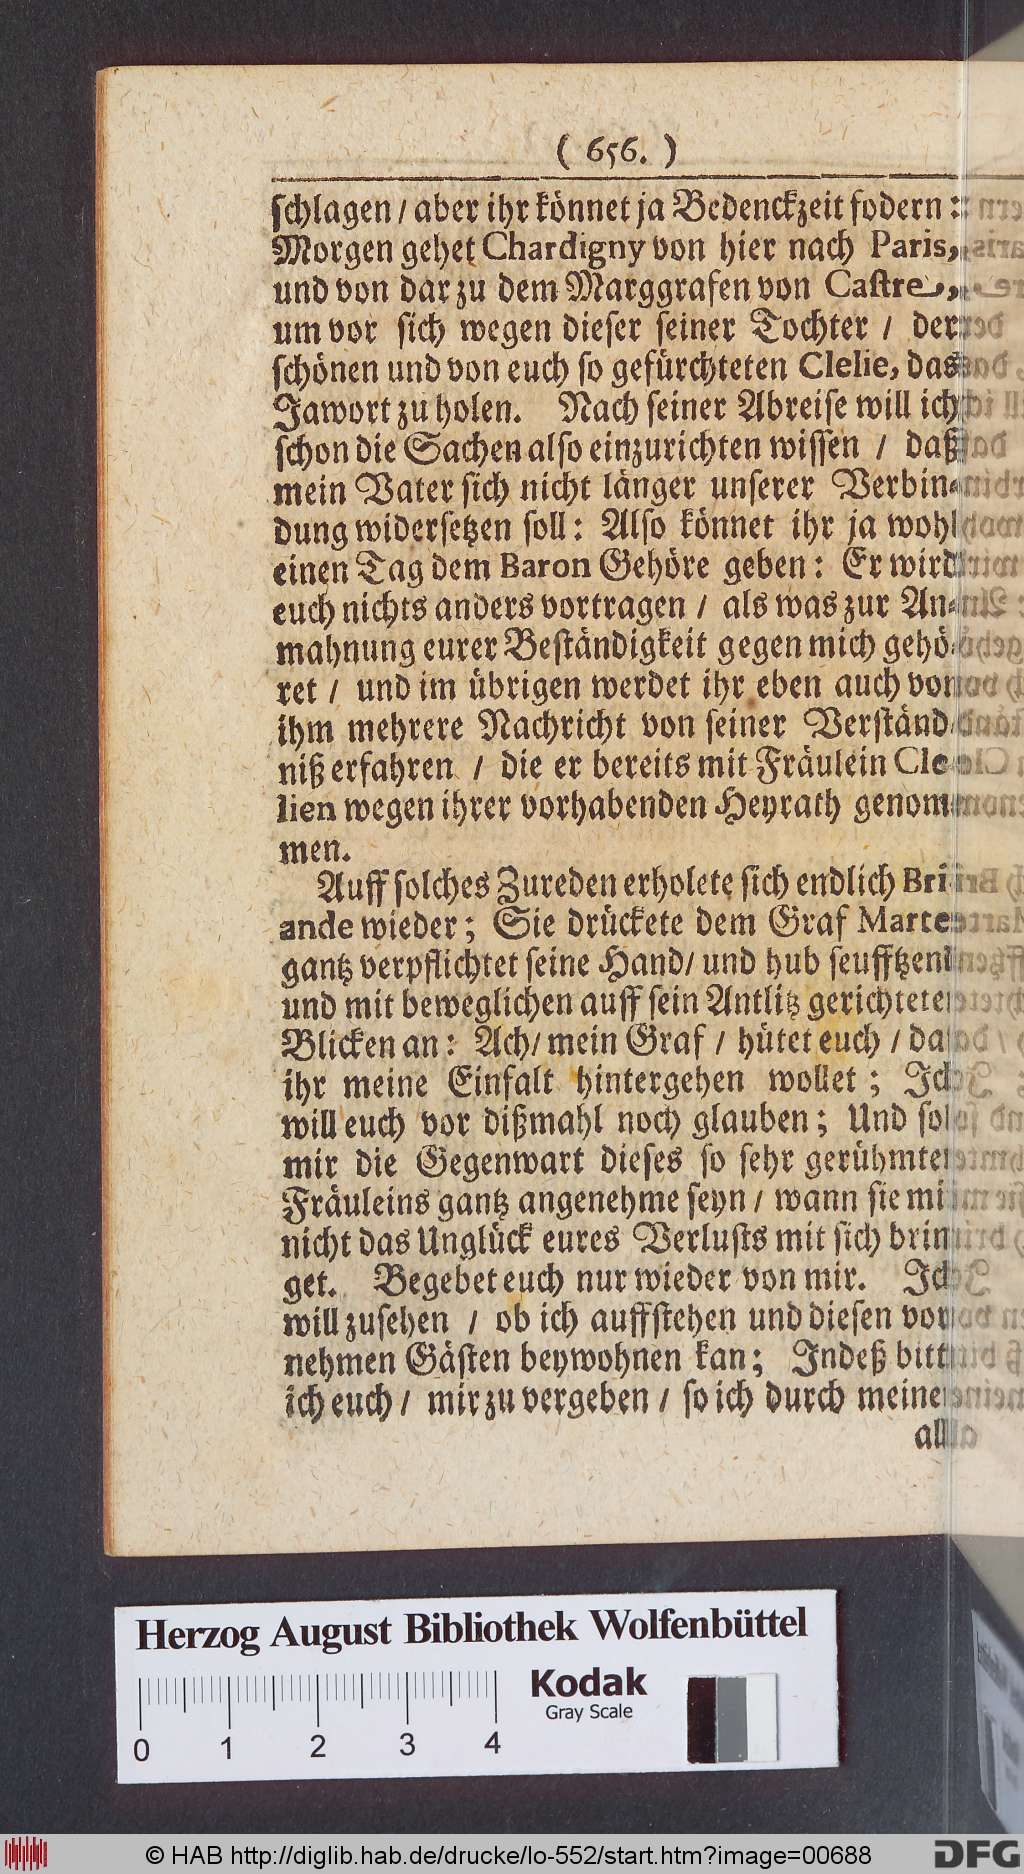 ( 656. )
schlagen / aber ihr könnet ja Bedenckzeit fodern :
Morgen gehet Chardigny von hier nach Paris,
und von dar zu dem Marggrafen von Castre,
um vor sich wegen dieser seiner Tochter / der
schönen und von euch so gefürchteten Clelie, das
Jawort zu holen. Nach seiner Abreise will ich
schon die Sachen also einzurichten wissen / daß
mein Vater sich nicht länger unserer Verbin-
dung widersetzen soll: Also könnet ihr ja wohl
einen Tag dem Baron Gehöre geben: Er wird
euch nichts anders vortragen / als was zur An-
mahnung eurer Beständigkeit gegen mich gehö-
ret / und im übrigen werdet ihr eben auch von
ihm mehrere Nachricht von seiner Verständ-
niß erfahren / die er bereits mit Fräulein Cle-
lien wegen ihrer vorhabenden Heyrath genom-
men.
Auff solches Zureden erholete sich endlich Bri-
ande wieder; Sie drückete dem Graf Marte
gantz verpflichtet seine Hand/ und hub seufftzend
und mit beweglichen auff sein Antlitz gerichteten
Blicken an: Ach/ mein Graf / hütet euch / daß
ihr meine Einfalt hintergehen wollet; Ich
will euch vor dißmahl noch glauben; Und soll
mir die Gegenwart dieses so sehr gerühmten
Fräuleins gantz angenehme seyn / wann sie mir
nicht das Unglück eures Verlusts mit sich brin-
get. Begebet euch nur wieder von mir. Ich
will zusehen / ob ich auffstehen und diesen vor-
nehmen Gästen beywohnen kan; Indeß bitt
ich euch / mir zu vergeben / so ich durch meine
all
Herzog August Bibliothek Wolfenbüttel
Kodak
Gray Scale
0 1 2 3 4
© HAB http://diglib.hab.de/drucke/lo-552/start.htm?image=00688
DFG